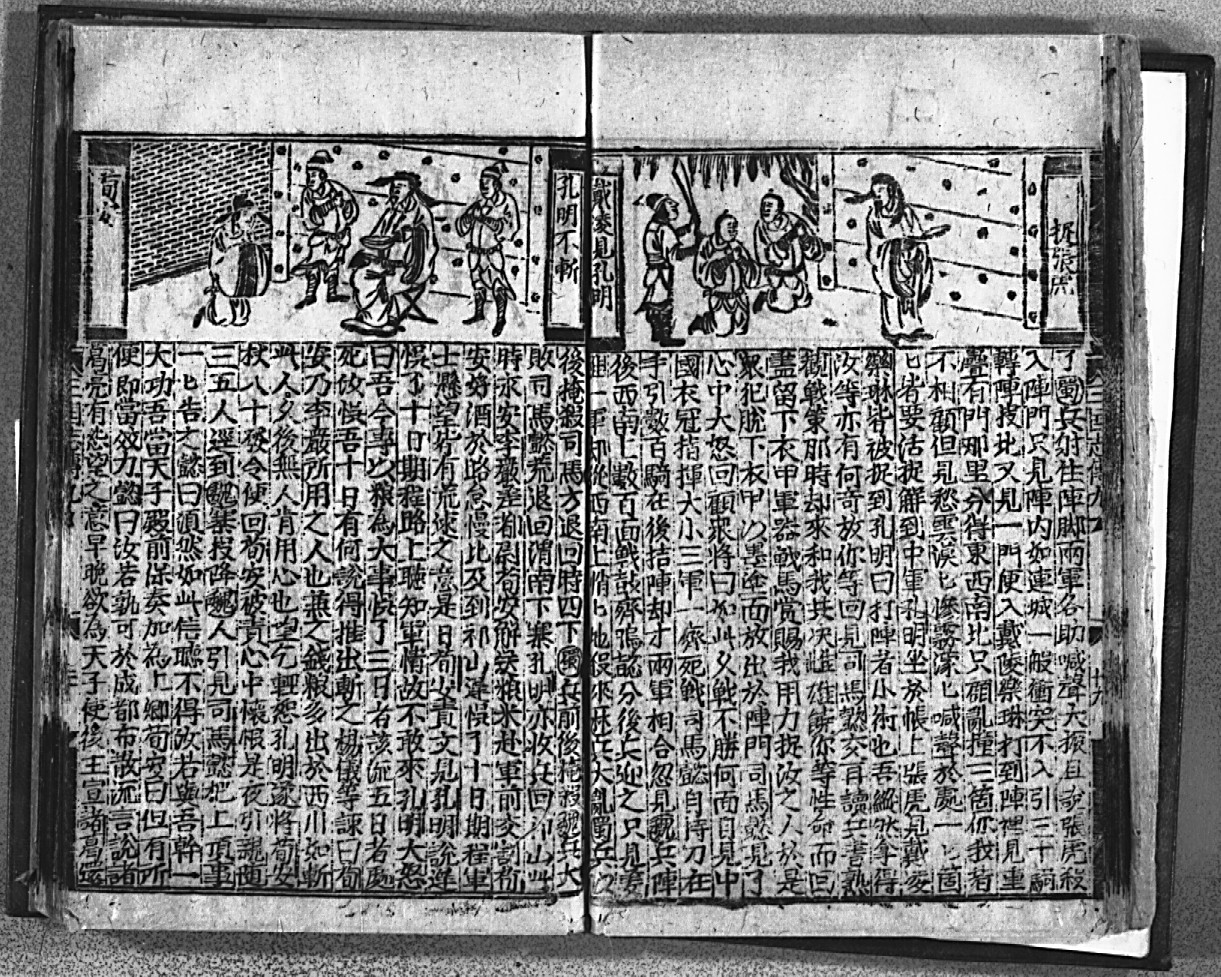 拆張虎
戴凌見孔明
了蜀兵射住陣脚兩軍各助喊聲大振且說張虎殺
入陣門只見陣內如連城一般衝突不入引三十騎
轉陣投北又見一門便入戴陵樂琳打到陣裡見重
疊有門那里分得東西南北只顧亂撞三箇你我看
不相顧但見愁雲漠匕慘霧濛匕喊聲於處一匕箇
匕皆要活捉解到中軍孔明坐於帳上張虎見戴凌
樂琳皆被捉到孔明曰打陣者小術也吾縱然拿得
汝等亦有何奇放你等回見司馬懿交再讀兵書熟
觀戰策那時却來和我共决雌雄饒你等性命而回
盡留下衣甲軍器戰馬賞賜我用力捉汝之人於是
眾犯脫下衣甲以墨塗面放出於陣門司馬懿見了
心中大怒回顧眾將曰如此久戰不勝何面目見中
國衣冠指揮大小三軍一齊死戰司馬懿自持刀在
手引數百騎在後拮陣却才兩軍相合忽見魏兵陣
後西南上數百面戰鼓齊鳴懿分後兵迎之只見姜
維一軍却從西南上悄匕地俣來魏兵大亂蜀兵以
三國志傳九
十九
孔明不斬
荀安
後掩殺司馬方退回時四下蜀兵前後掩殺魏兵大
敗司馬懿荒退回渭南下寨孔明亦收兵回祁山此
時永安李嚴差都尉荀安解送粮米赴軍前交割荀
安好酒於路怠慢比及到祁山違悞了十日期程軍
士懸望皆有荒速之意是日荀安責文見孔明說違
悞了十日期程路上聽知軍情故不敢來孔明大怒
曰吾今專以粮為大事悞了三日者該流五日者處
死汝悞吾十日有何說得推出斬之楊儀等諫曰荀
安乃李嚴所用之人也兼之錢粮多出於西川如斬
此人久後無人肯用心也望乞輕恕孔明遂將荀安
杖八十發令便回荀安被責心中懷恨是夜引親隨
三五人逕到魏寨投降魏人引見司馬懿把上項事
一匕告之懿曰須然如此信聽不得汝若與吾幹一
大功吾當天子殿前保奏加為上卿荀安曰但有所
便即當效力懿曰汝若孰可於成都布散流言說諸
葛亮有怨望之意早晚欲為天子使後主宣諸葛還